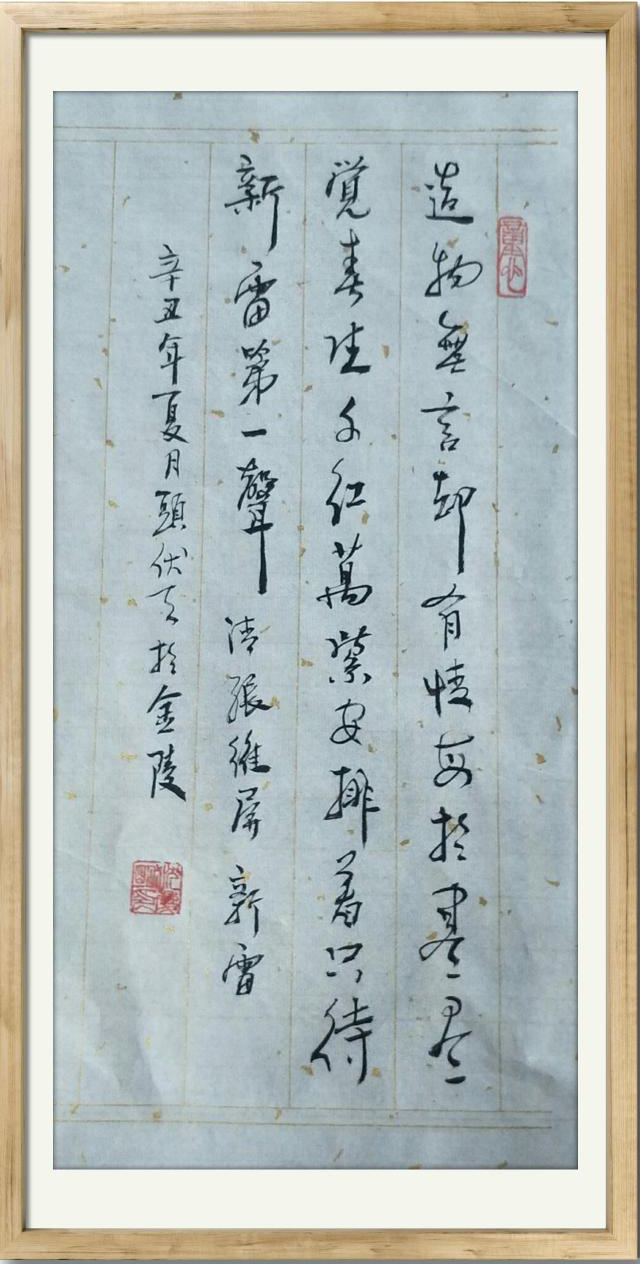 造物無言却有情每於寒尽
覚春生千紅萬紫安排着只待
新雷第一聲 清張維屏 新雷
辛丑年夏月頭伏天於金陵